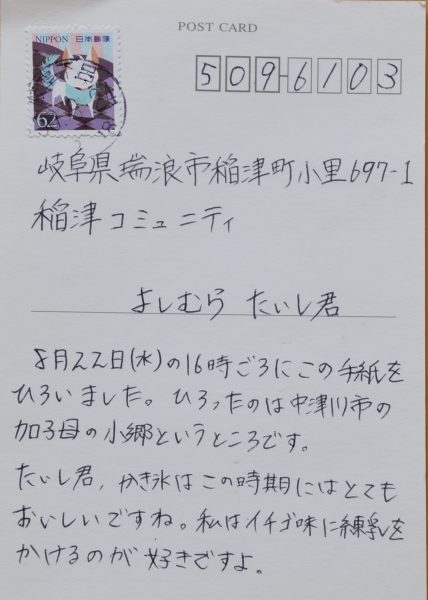 POST CARD
NIPPON 日本郵便
62
509-6103
岐阜県瑞浪市稲津町小里697-1
稲津コミュニティ
よしむら たいし君
8月22日(水)の16時ごろにこの手紙を
ひろいました。ひろったのは中津川市の
加子母の小郷というところです。
たいし君,かき氷はこの時期にはとても
おいしいですね。私はイチゴ味に練乳を
かけるのが好きですよ。